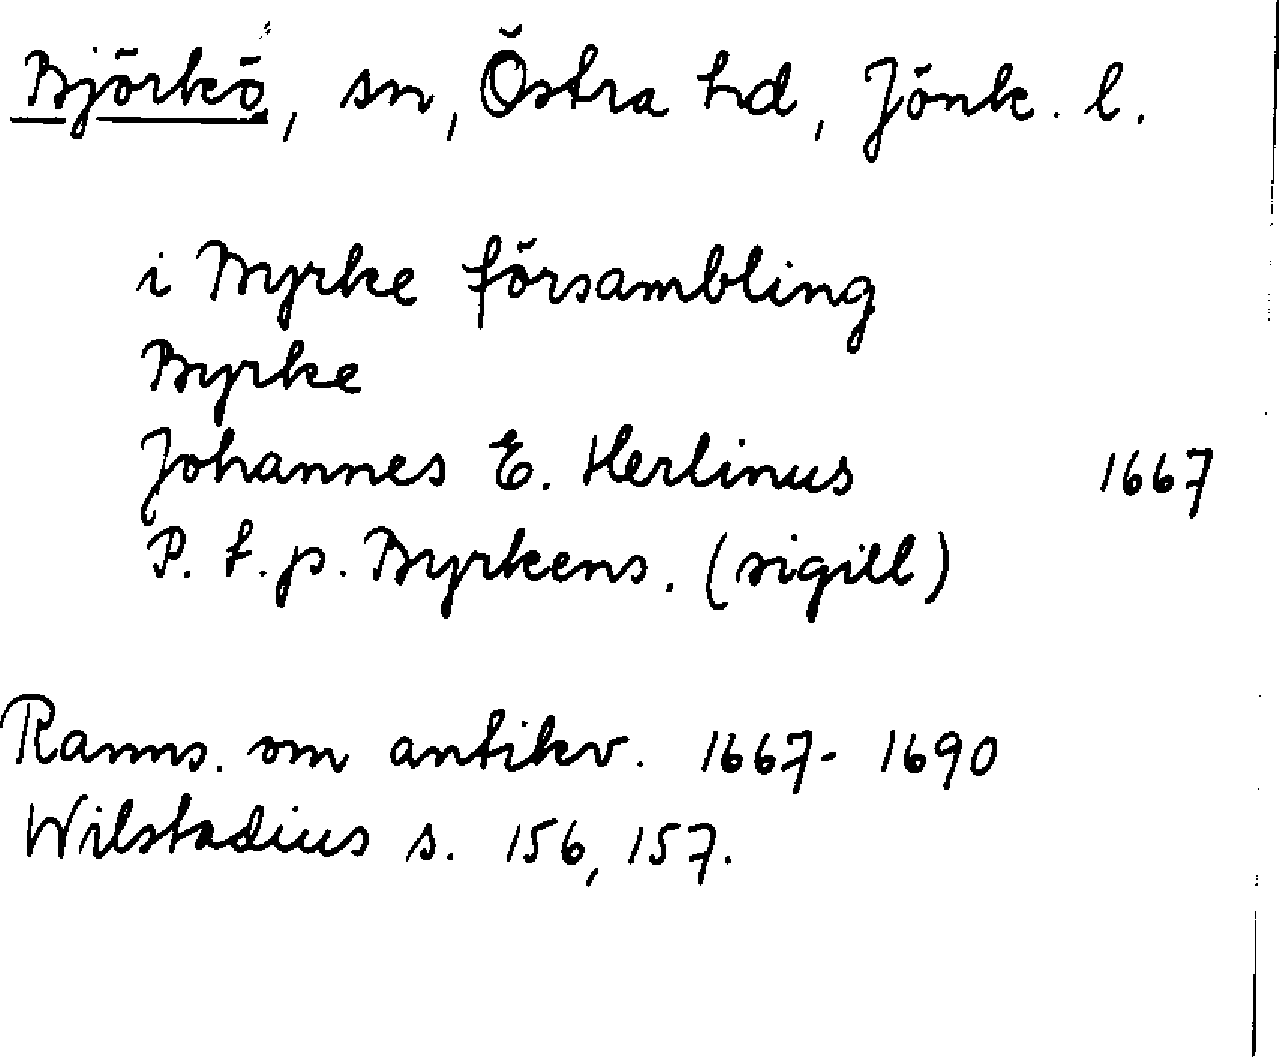 Björkö, sn, Östra hd, Jönk. l.
i Byrke försambling
Byrke
Johannes E. Herlinus 1667
P. t. p. Byrkens. (sigill)
Ranns. om antikv. 1667-1690
Wilstadius s. 156, 157.